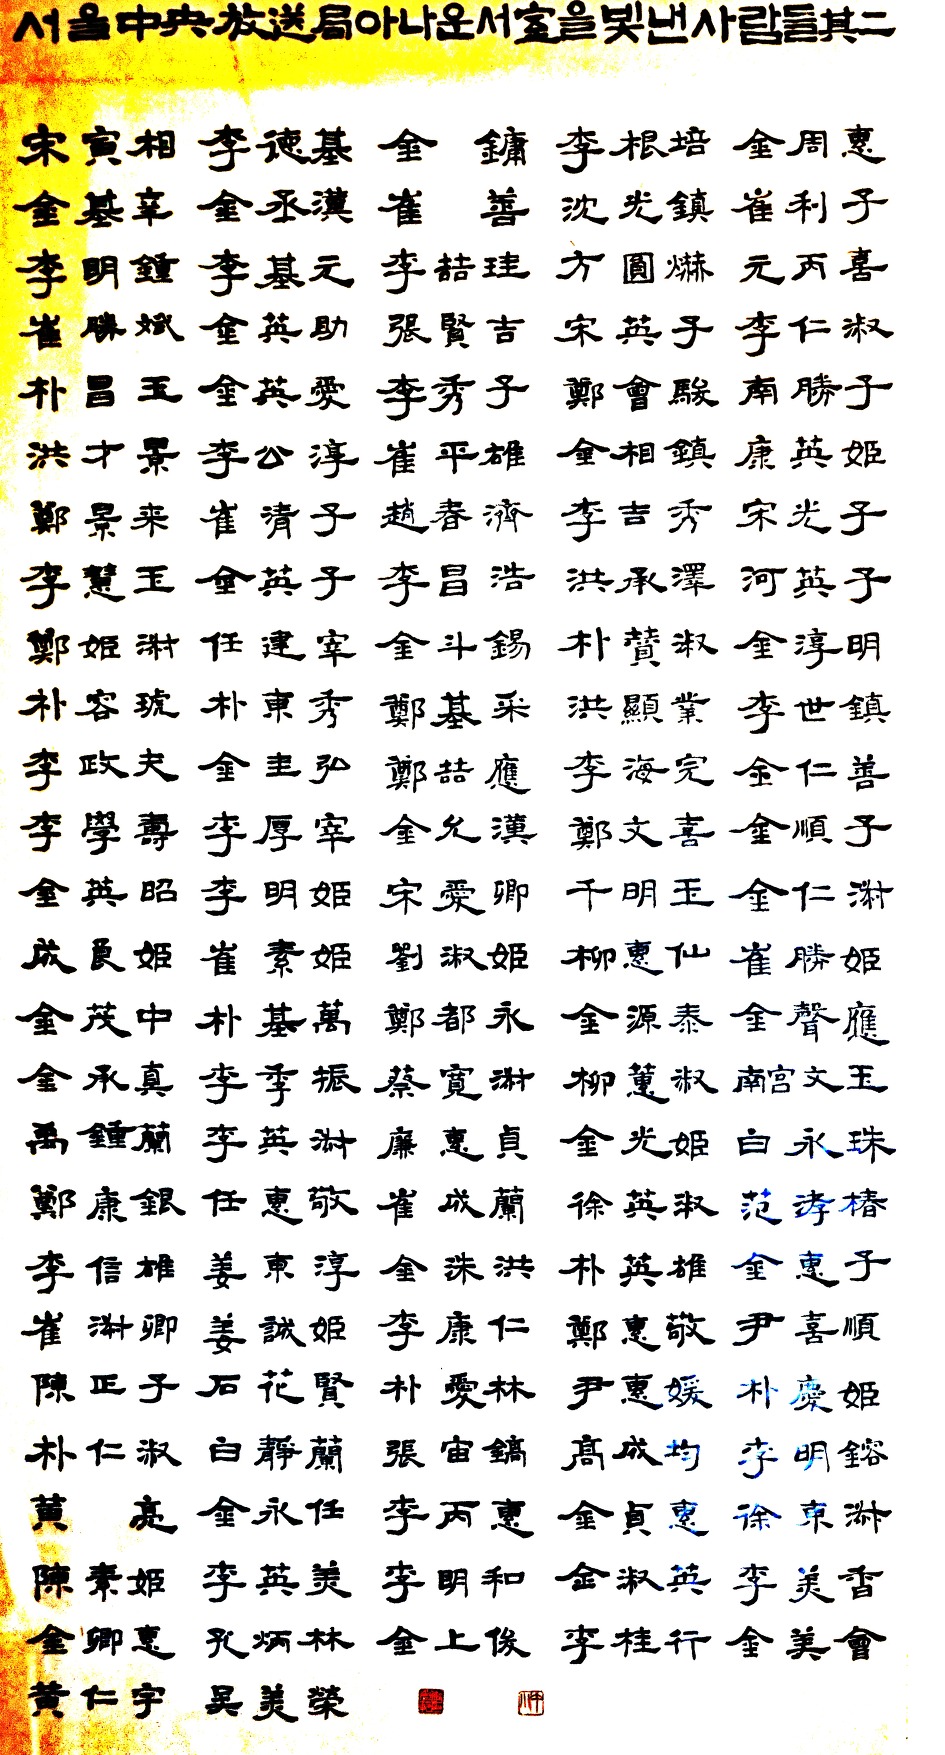 서울中央放送局아나운서室을빛낸사람들其二
宋寅相 李德基 金鏞 李根培 金周惠
金基辛 金丞漢 崔善 沈光鎮 崔利子
李明鍾 李基元 李喆珪 方圓爀 元丙喜
崔勝斌 金英助 張賢吉 宋英子 李仁淑
朴昌玉 金英愛 李秀子 鄭會駿 南勝子
洪才景 李公淳 崔平雄 金相鎮 康英姬
鄭景来 崔清子 趙春濟 李吉秀 宋光子
李慧玉 金英子 李昌浩 洪承澤 河英子
鄭姬淑 任建宰 金斗錫 朴贊淑 金淳明
朴容琥 朴東秀 鄭基采 洪顯業 李世鎮
李政夫 金圭弘 鄭喆應 李海完 金仁善
李學壽 李厚宰 金允漢 鄭文喜 金順子
金英昭 李明姬 宋愛卿 千明玉 金仁淑
成良姬 崔素姬 劉淑姬 柳惠仙 崔勝姬
金茂中 朴基萬 鄭都永 金源泰 金聲應
金承真 李季振 蔡寬淑 柳蕙淑 南宮文玉
禹鍾蘭 李英淑 廉惠貞 金光姬 白永珠
鄭康銀 任惠敬 崔成蘭 徐英淑 范孝椿
李信雄 姜東淳 金洙洪 朴英雄 金惠子
崔淑卿 姜誠姬 李康仁 鄭惠敬 尹喜順
陳正子 石花賢 朴愛林 尹惠媛 朴慶姬
朴仁淑 白靜蘭 張宙鎬 高成均 李明鎔
黃亮 金永任 李丙惠 金貞惠 徐東淑
陳素姬 李英美 李明和 金淑英 李美香
金卿惠 孔炳林 金上俊 李桂行 金美會
黃仁宇 吳美榮